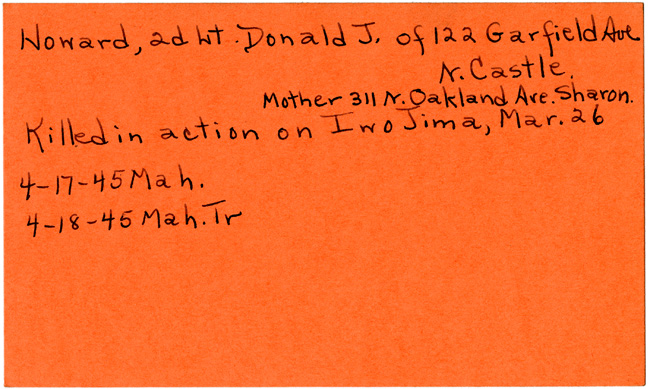 Howard, 2d Lt. Donald J. of 122 Garfield Ave
N. Castle.
Mother 311 N. Oakland Ave. Sharon.
Killed in action on Iwo Jima, Mar. 26
4-17-45 Mah.
4-18-45 Mah. Tr